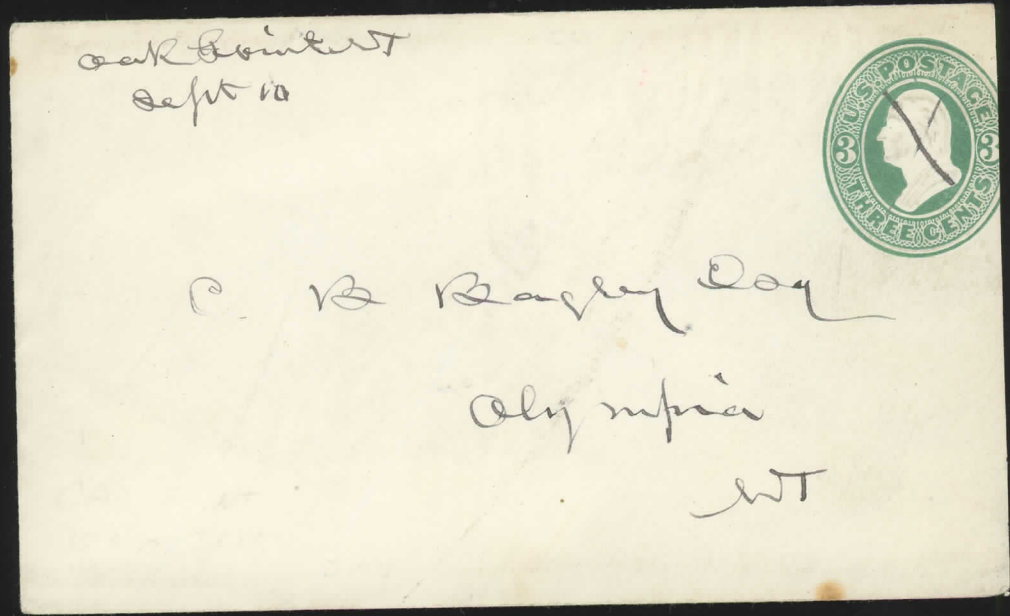 Oak Point WT
Sept 10
U.S. POSTAGE
3 3
THREE CENTS
C B Bagley Esq
Olympia
WT